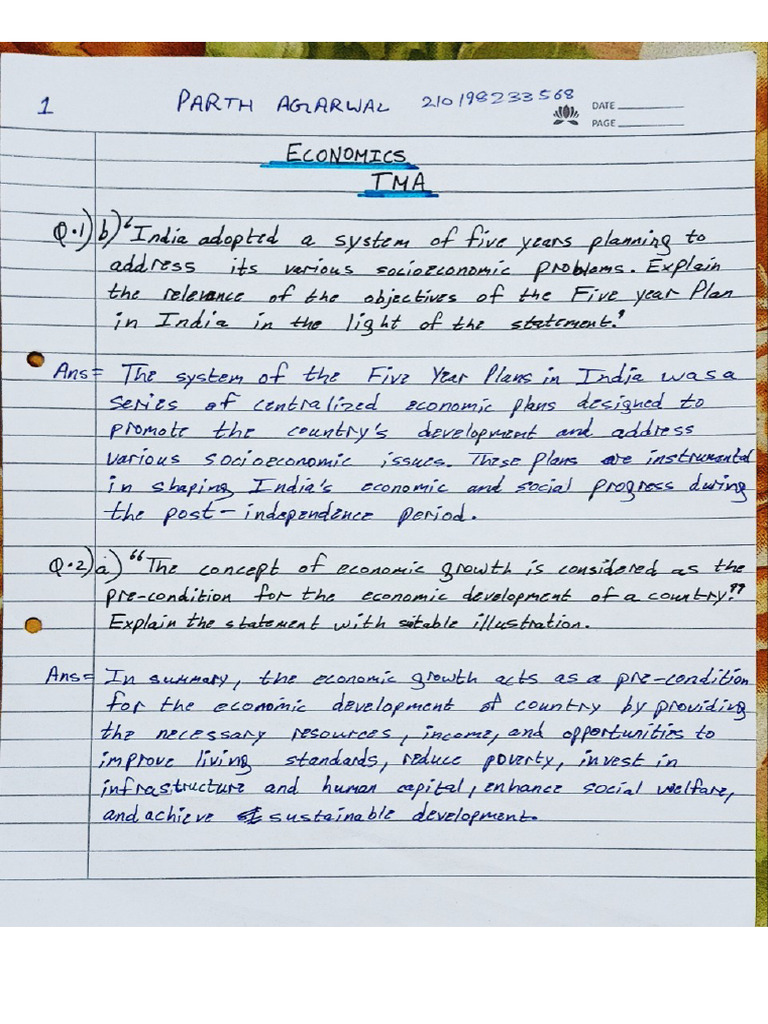 1 PARTH AGARWAL 210198233568
DATE
PAGE
ECONOMICS
TMA
Q.1) b) ‘India adopted a system of five years planning to
address its various socioeconomic problems. Explain
the relevance of the objectives of the Five year Plan
in India in the light of the statement.’
Ans= The system of the Five Year Plans in India was a
series of centralized economic plans designed to
promote the country's development and address
various socioeconomic issues. These plans are instrumental
in shaping India's economic and social progress during
the post-independence period.
Q.2) a) “The concept of economic growth is considered as the
pre-condition for the economic development of a country.”
Explain the statement with sitable illustration.
Ans= In summary, the economic growth acts as a pre-condition
for the economic development of country by providing
the necessary resources, income, and opportunities to
improve living standards, reduce poverty, invest in
infrastructure and human capital, enhance social welfare,
and achieve sustainable development.